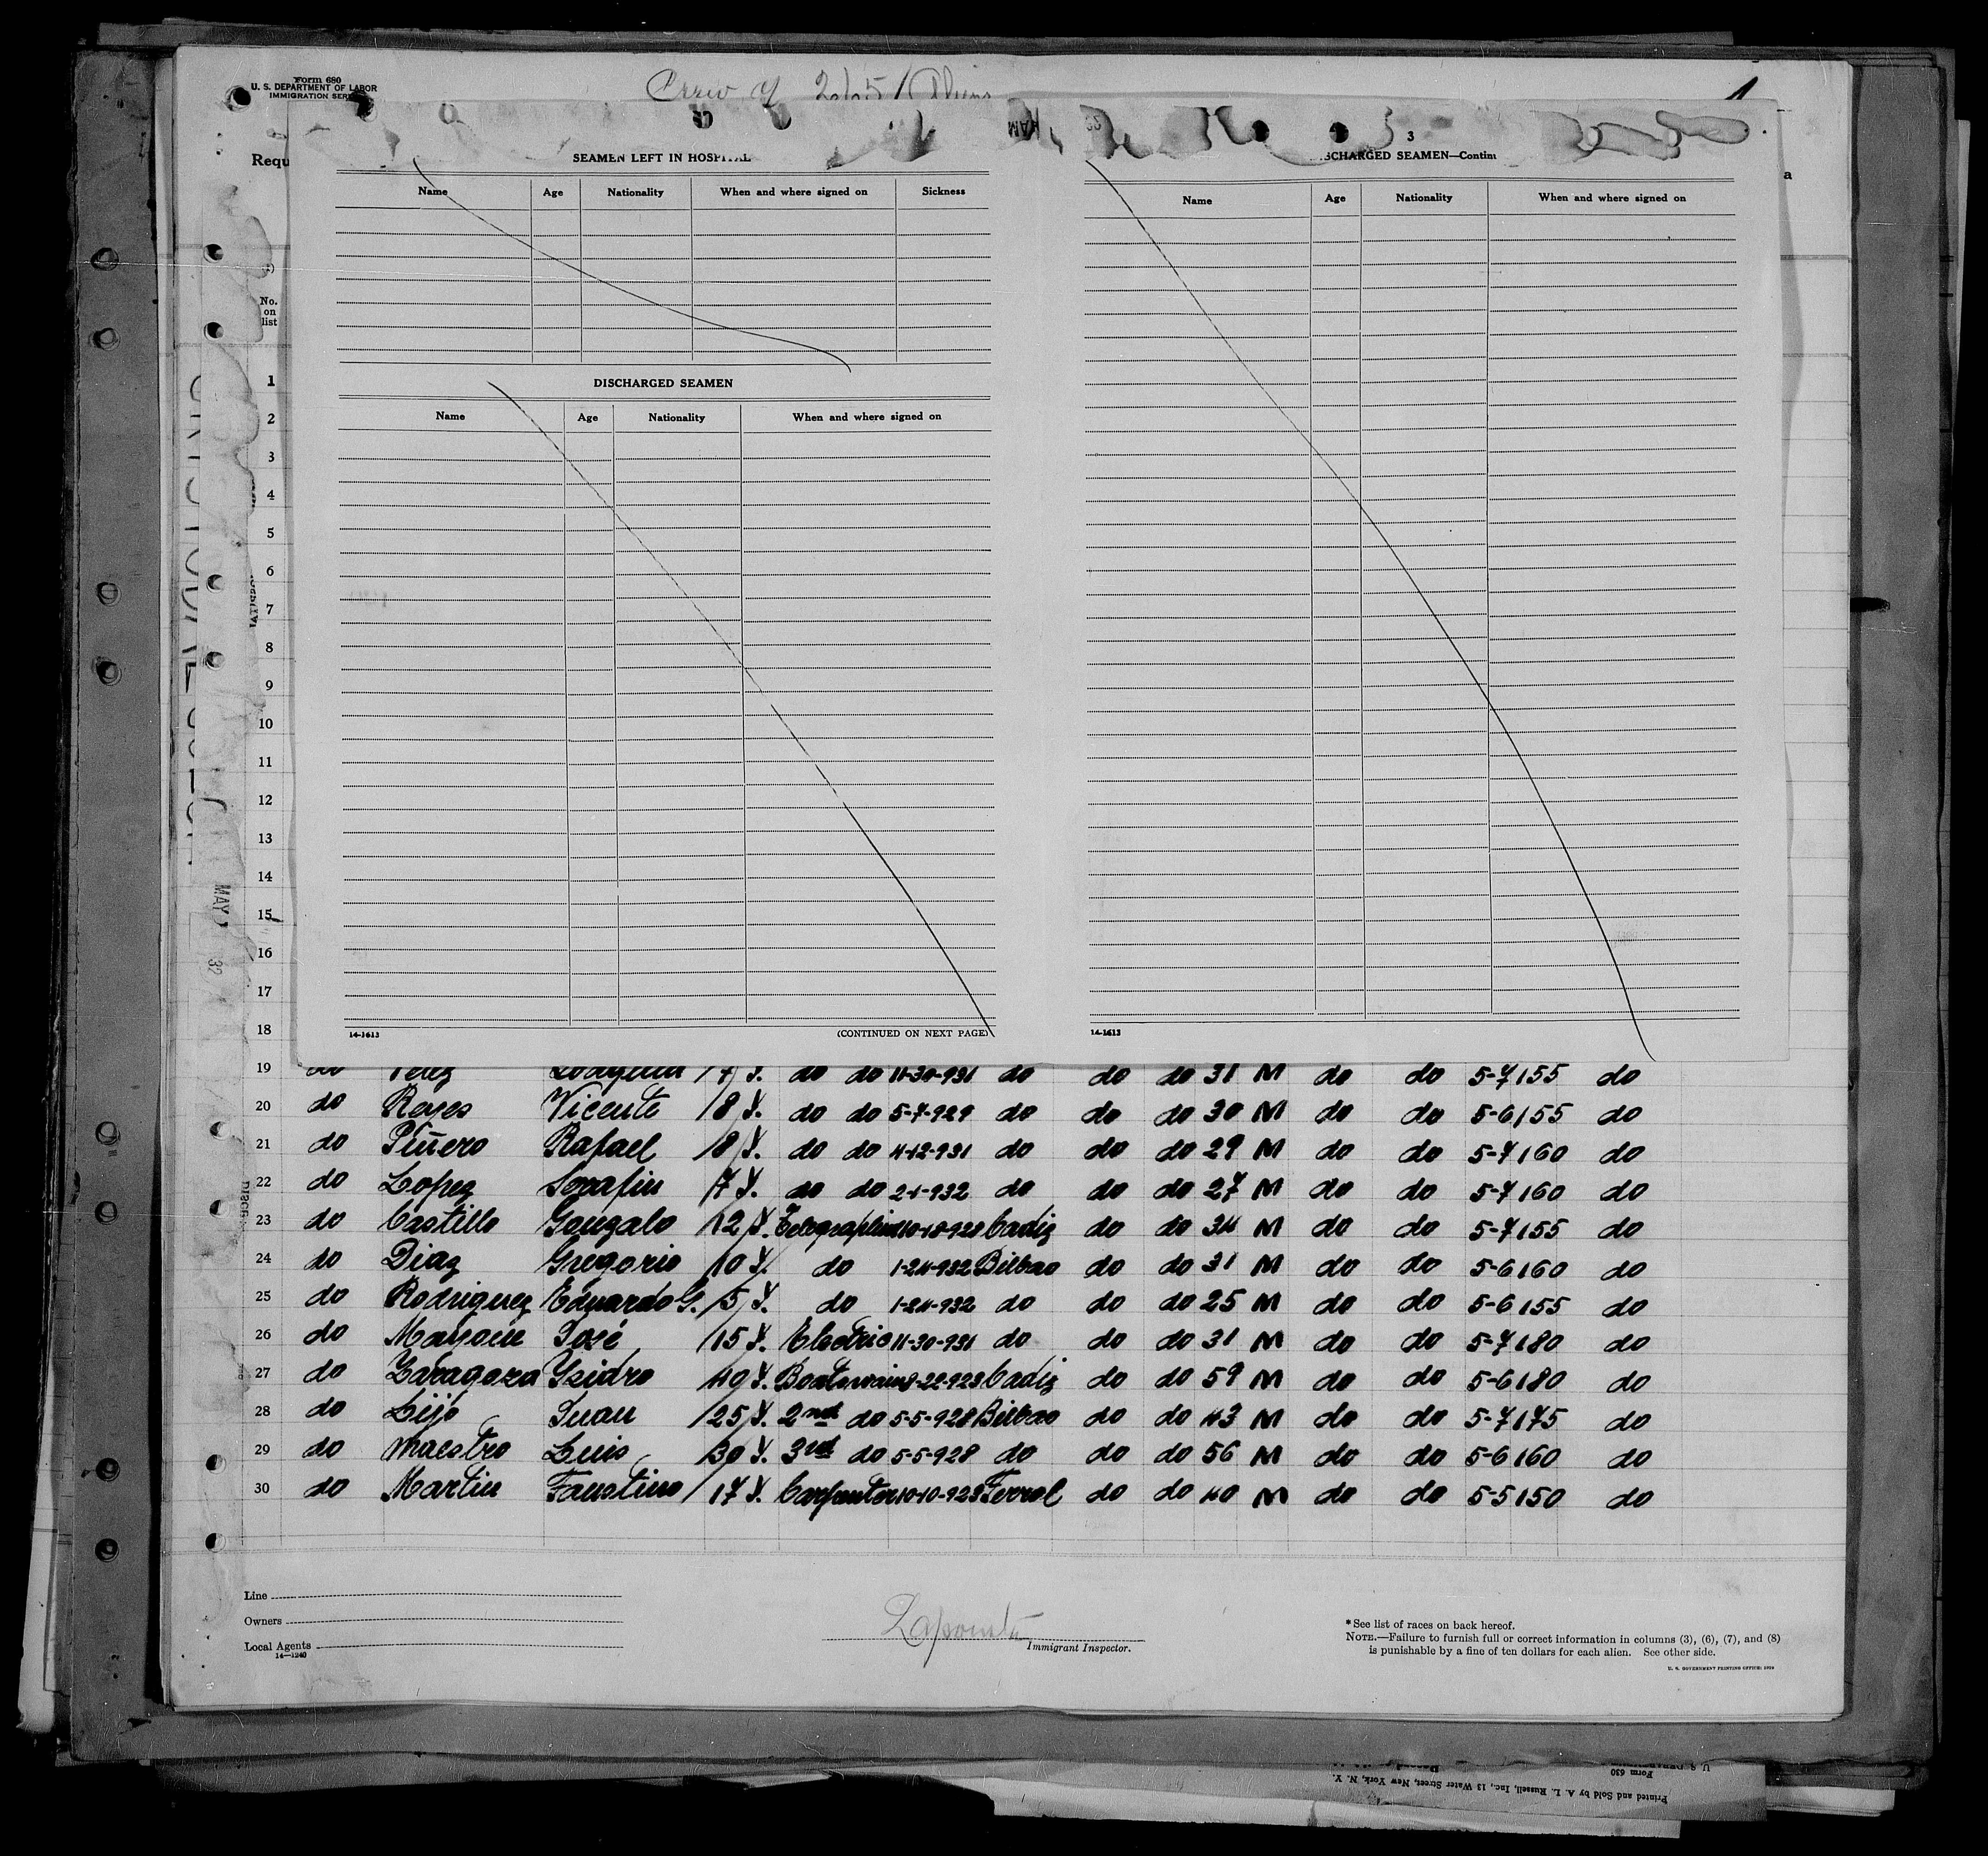 Form 680
U. S. DEPARTMENT OF LABOR
IMMIGRATION SERV
Crew of 265 / Aliens
Requ
a
SEAMEN LEFT IN HOSPITAL
Name Age Nationality When and where signed on Sickness
DISCHARGED SEAMEN
Name Age Nationality When and where signed on
14-1613 (CONTINUED ON NEXT PAGE)
3
SCHARGED SEAMEN—Contin
Name Age Nationality When and where signed on
14-1613
No.
on
list
1
2
3
4
5
6
7
8
9
10
11
12
13
14
15
16
17
18
MAY
19 do Perez Joaquin 7 Y. do do 11-30-931 do do do 31 M do do 5-7 155 do
20 do Reyes Vicente 8 Y. do do 5-7-929 do do do 30 M do do 5-6 155 do
21 do Piñero Rafael 8 Y. do do 4-12-931 do do do 29 M do do 5-7 160 do
22 do Lopez Serafin 7 Y. do do 2-1-932 do do do 27 M do do 5-7 160 do
23 do Castillo Gonzalo 12 Y. Telegraphist 10-18-928 Cadiz do do 34 M do do 5-7 155 do
24 do Diaz Gregorio 10 Y. do 1-24-932 Bilbao do do 31 M do do 5-6 160 do
25 do Rodriguez Eduardo G. 5 Y. do 1-24-932 do do do 25 M do do 5-6 155 do
26 do José 15 Y. Electric 11-30-931 do do do 31 M do do 5-7 180 do
27 do Zaragoza Ysidro 40 Y. Boatswain 9-22-928 Cadiz do do 59 M do do 5-6 180 do
28 do Lijó Juan 25 Y. 2nd do 5-5-928 Bilbao do do 43 M do do 5-7 175 do
29 do Maestro Luis 30 Y. 3rd do 5-5-928 do do do 56 M do do 5-6 160 do
30 do Martin Faustino 17 Y. Carpenter 10-10-928 Ferrol do do 40 M do do 5-5 150 do
Line
Owners
Local Agents
14—1240
Lapointe
Immigrant Inspector.
* See list of races on back hereof.
NOTE.—Failure to furnish full or correct information in columns (3), (6), (7), and (8)
is punishable by a fine of ten dollars for each alien. See other side.
U. S. GOVERNMENT PRINTING OFFICE: 1929
Form 630
Printed and Sold by A. L. Russell, Inc., 13 Water Street, New York, N. Y.